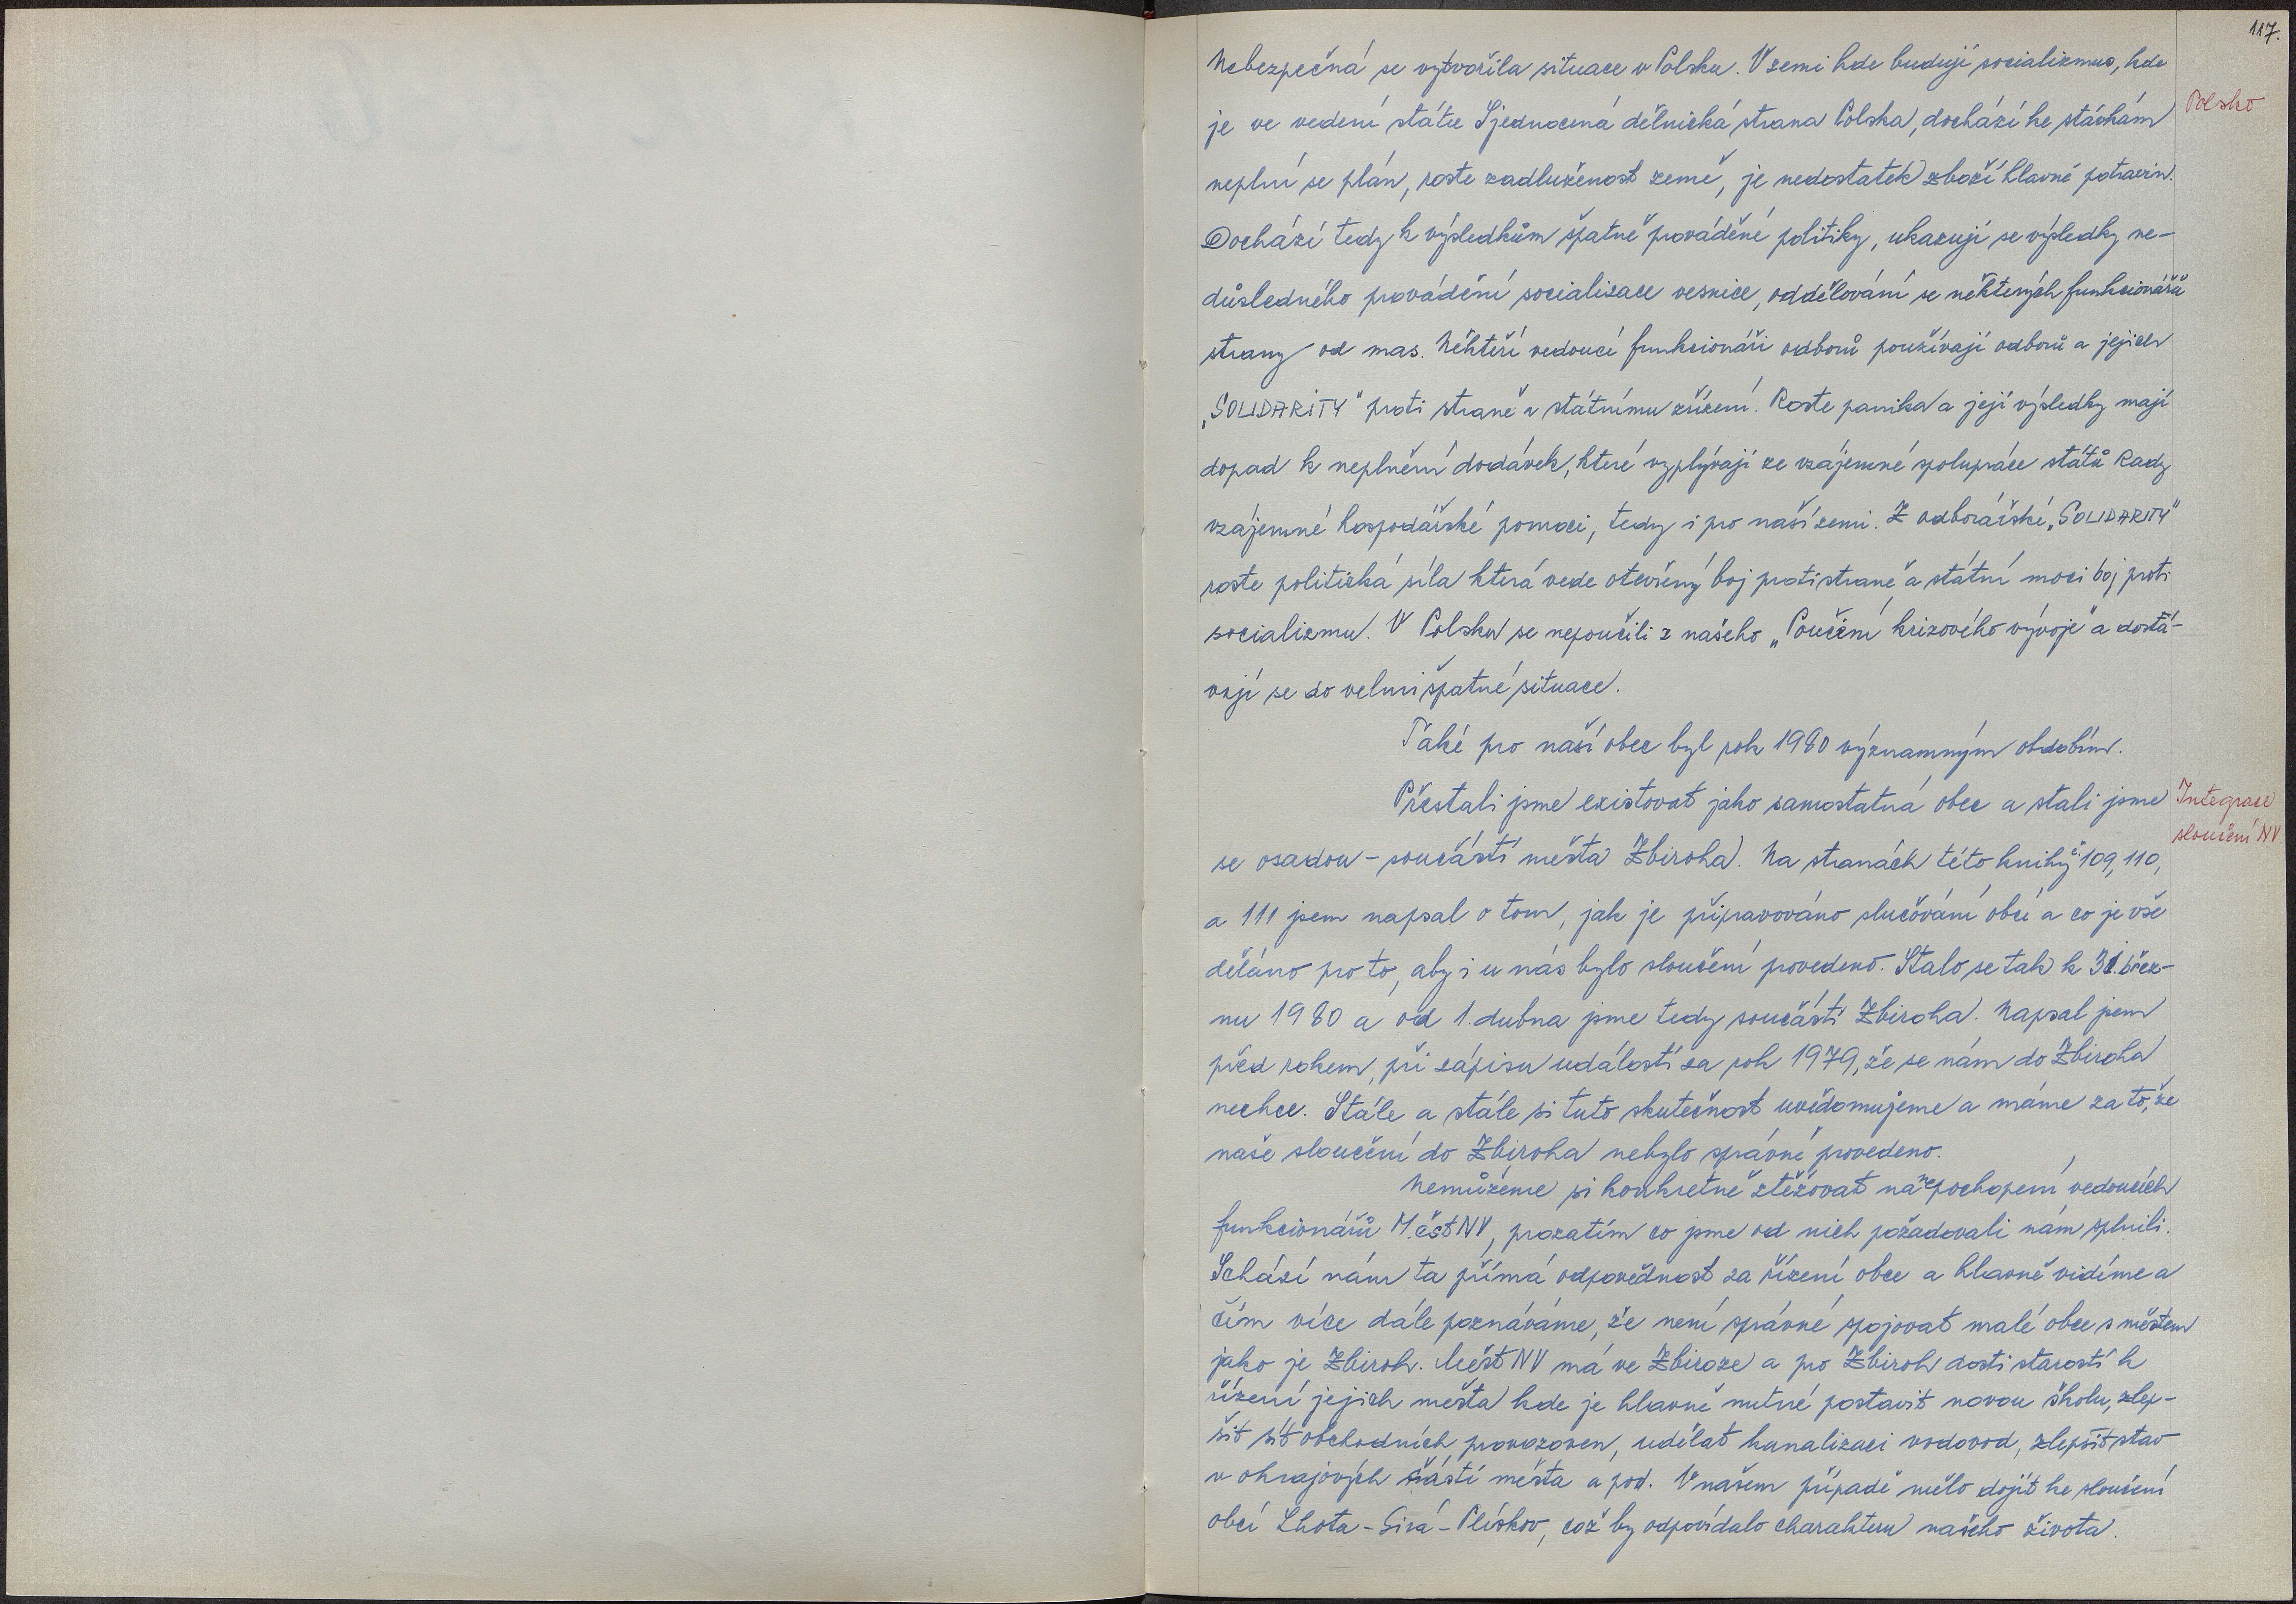 117.
Nebezpečná se vytvořila situace v Polsku. V zemi kde budují socializmus, kde
je ve vedení státu Sjednocená dělnická strana Polska, dochází ke stávkám
Polsko
neplní se plán, roste zadluženost země, je nedostatek zboží hlavně potravin.
Dochází tedy k výsledkům špatně prováděné politiky, ukazují se výsledky ne-
důsledného provádění socialisace vesnice, oddělování se některých funkcionářů
strany od mas. Někteří vedoucí funkcionáři odborů používají odborů a jejich
„SOLIDARITY" proti straně a státnímu zřízení. Roste panika a její výsledky mají
dopad k neplnění dodávek, které vyplývají ze vzájemné spolupráce států Rady
vzájemné hospodářské pomoci, tedy i pro naší zemi. Z odborářské „SOLIDARITY"
roste politická síla která vede otevřený boj proti straně a státní moci boj proti
socializmu. V Polsku se nepoučili z našeho „Poučení krizového vývoje" a dostá-
vají se do velmi špatné situace.
Také pro naší obec byl rok 1980 významným obdobím.
Přestali jsme existovat jako samostatná obec a stali jsme
Integrace
sloučení NV
se osadou - součástí města Zbiroha. Na stranách této knihy č. 109, 110,
a 111 jsem napsal o tom, jak je připravováno slučování obcí a co je vše
děláno pro to, aby i u nás bylo sloučení provedeno. Stalo se tak k 31. břez-
nu 1980 a od 1. dubna jsme tedy součástí Zbiroha. Napsal jsem
před rokem, při zápisu událostí za rok 1979, že se nám do Zbiroha
nechce. Stále a stále si tuto skutečnost uvědomujeme a máme za to, že
naše sloučení do Zbiroha nebylo správně provedeno.
Nemůžeme si konkretně ztěžovat na nepochopení vedoucích
funkcionářů M.ěst NV, prozatím co jsme od nich požadovali nám splnili.
Schází nám ta přímá odpovědnost za řízení obce a hlavně vidíme a
čím více dále poznáváme, že není správné spojovat malé obce s městem
jako je Zbiroh. Měst NV má ve Zbiroze a pro Zbiroh dosti starostí k
řízení jejich města kde je hlavně nutné postavit novou školu, zlep-
šit síť obchodních provozoven, udělat kanalizaci vodovod, zlepšit stav
v okrajových částí města a pod. V našem případě mělo dojít ke sloučení
obcí Lhota - Sirá - Plískov, což by odpovídalo charakteru našeho života.